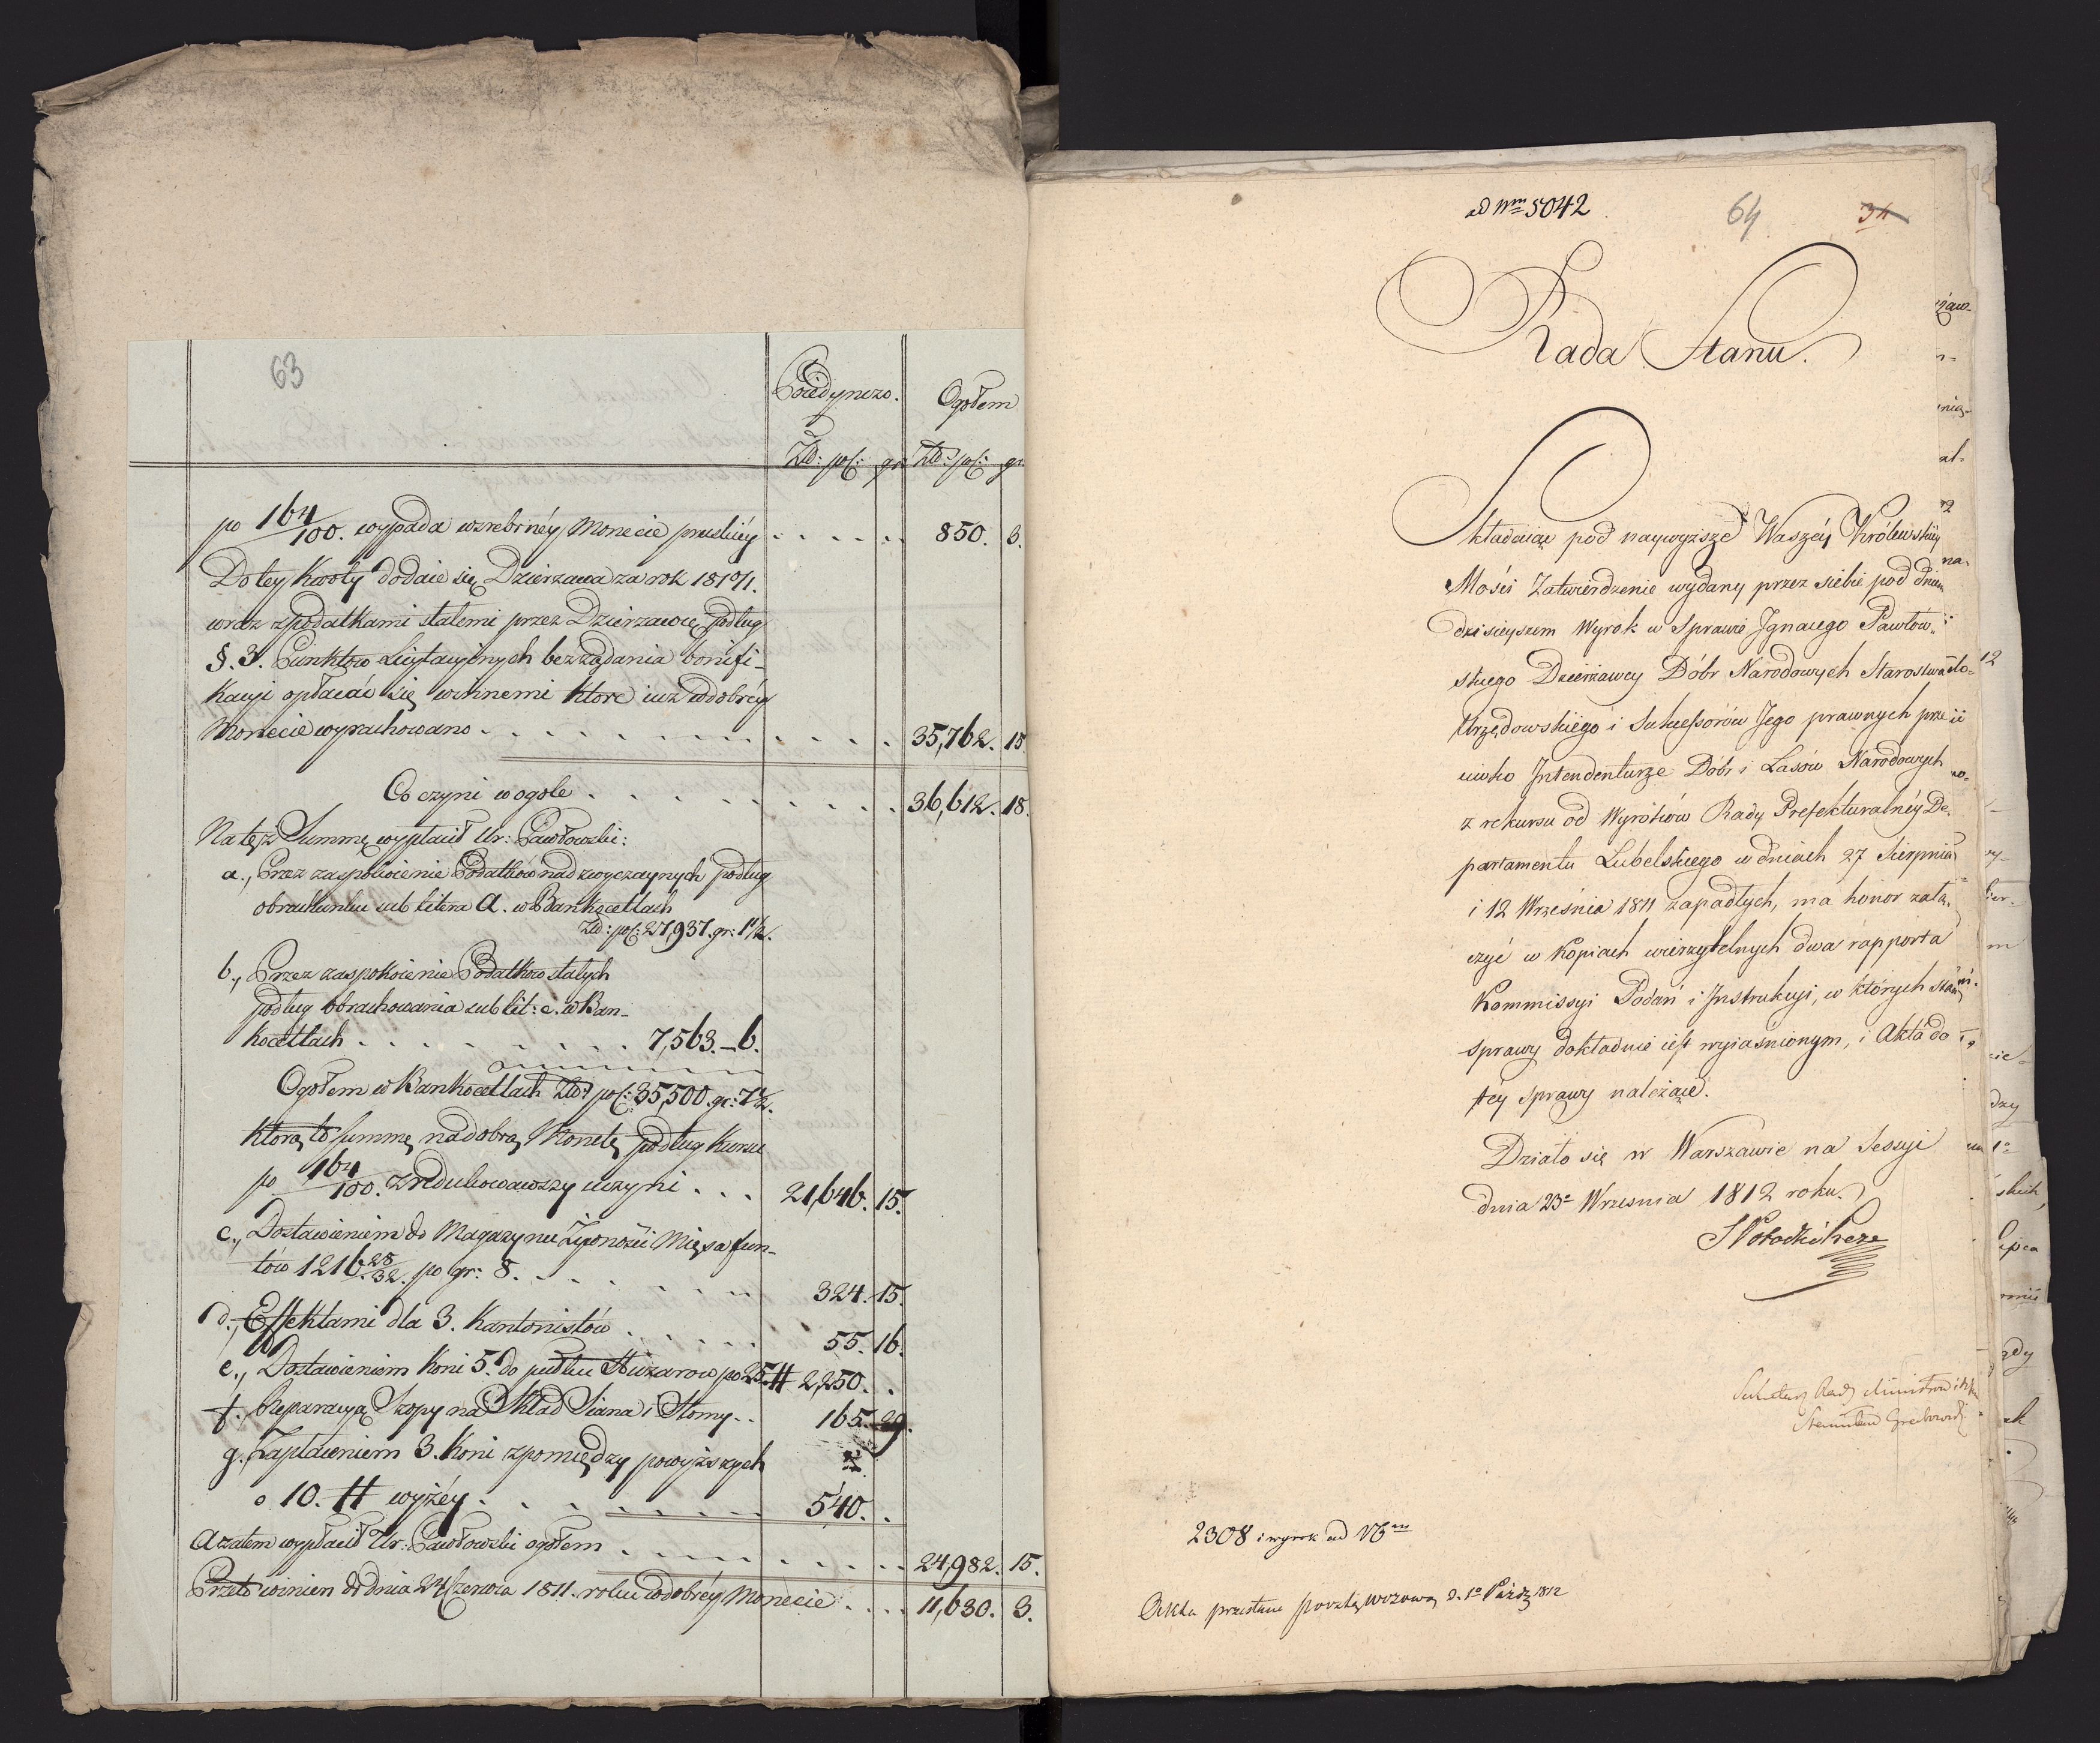 63
Poiedynczo. Ogółem
Zld: pol: gr. Zld: pol: gr.
po 164/100. wypada w srebrnéy Monecie pruskiéy . . . . . 850. 3.
Do tey kwoty dodaie się Dzierzawa za rok 1810/1.
wraz z podatkami stałemi przez Dzierzawcę podług
§. 3. Punktow Licytacyinych bez żądania bonifi-
kacyi opłacać się winnemi ktore iuż w dobréy
Monecie wyrachowano . . . . . . . . 35,762. 15.
Co czyni w ogole . . . . . . . 36,612. 18.
Na tęż Summę wypłacił Ur: Pawłowski:
a., Przez zaspokoienie Podatków nadzwyczaynych podług
obrachunku sub litera A. w Bankocetlach
Zld: pol: 27,937. gr: 1 1/2.
b., Przez zaspokoienie Podatkow stałych
podług obrachowania sub lit: c. w Ban-
kocetlach . . . . . . . 7,563. - 6.
Ogołem w Bankocetlach Zld: pol: 35,500. gr: 7 1/2.
ktorą to summę na dobrą Monetę podług kursu
po 164/100. zredukowawszy uczyni . . . 21,646. 15.
c., Dostawieniem do Magazynu Żywności Mięsa fun-
tów 1216 28/32. po gr: 8. . . . . . . 324. 15.
d., Effektami dla 3. Kantonistów . . . . . 55. 16.
e., Dostawieniem Koni 5. do pułku Huzarow po 25 # 2,250. .
f., Reparacyą Szopy na Skład Siana i Słomy . . 165. 29.
g., Zapłaceniem 3. Koni z pomiędzy powyższych
o 10. # wyżéy . . . . . . . 540. .
A zatem wypłacił Ur: Pawłowski ogołem . . . . . . . 24,982. 15.
Przeto winien do dnia 24 Czerwca 1811. roku w dobréy Monecie . . . 11,630. 3.
ad Nrm 5042
64 34
Rada Stanu.
Składaiąc pod naywyższe Waszéy Królewskiéy
Mości Zatwierdzenie wydany przez siebie pod dniem
dzisieyszem Wyrok w Sprawie Ignacego Pawłow-
skiego Dzierżawcy Dóbr Narodowych Starostwa
Urzędowskiego i Sukcessorów Jego prawnych prze
ciwko Intendenturze Dóbr i Lasów Narodowych
z rekursu od Wyroków Rady Prefekturalnéy De-
partamentu Lubelskiego w dniach 27 Sierpnia
i 12 Września 1811 zapadłych, ma honor załą-
czyć w Kopiach wierzytelnych dwa rapporta
Kommissyi Podań i Instrukcyi, w których stan
sprawy dokładnie iest wyiaśnionym, i Akta do
téy sprawy należące.
Działo się w Warszawie na Sessyi
dnia 23o Wrzesnia 1812 roku.
Sekretarz Rady Ministrów i
2308 i wyrok ad
Akta przesłane pocztą wozową d. 1o Paźdz 1812